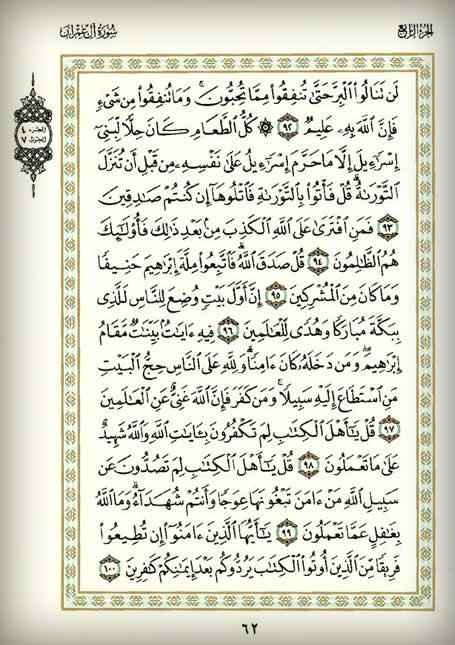 الجزء الرابع
سورة آل عمران
لَن تَنَالُوا۟ ٱلْبِرَّ حَتَّىٰ تُنفِقُوا۟ مِمَّا تُحِبُّونَ ۚ وَمَا تُنفِقُوا۟ مِن شَىْءٍ
فَإِنَّ ٱللَّهَ بِهِۦ عَلِيمٌ ٩٢ ۞ كُلُّ ٱلطَّعَامِ كَانَ حِلًّا لِّبَنِىٓ
إِسْرَٰٓءِيلَ إِلَّا مَا حَرَّمَ إِسْرَٰٓءِيلُ عَلَىٰ نَفْسِهِۦ مِن قَبْلِ أَن تُنَزَّلَ
ٱلتَّوْرَىٰةُ ۗ قُلْ فَأْتُوا۟ بِٱلتَّوْرَىٰةِ فَٱتْلُوهَآ إِن كُنتُمْ صَـٰدِقِينَ
٩٣ فَمَنِ ٱفْتَرَىٰ عَلَى ٱللَّهِ ٱلْكَذِبَ مِنۢ بَعْدِ ذَٰلِكَ فَأُو۟لَـٰٓئِكَ
هُمُ ٱلظَّـٰلِمُونَ ٩٤ قُلْ صَدَقَ ٱللَّهُ ۗ فَٱتَّبِعُوا۟ مِلَّةَ إِبْرَٰهِيمَ حَنِيفًا
وَمَا كَانَ مِنَ ٱلْمُشْرِكِينَ ٩٥ إِنَّ أَوَّلَ بَيْتٍ وُضِعَ لِلنَّاسِ لَلَّذِى
بِبَكَّةَ مُبَارَكًا وَهُدًى لِّلْعَـٰلَمِينَ ٩٦ فِيهِ ءَايَـٰتٌۢ بَيِّنَـٰتٌ مَّقَامُ
إِبْرَٰهِيمَ ۖ وَمَن دَخَلَهُۥ كَانَ ءَامِنًا ۗ وَلِلَّهِ عَلَى ٱلنَّاسِ حِجُّ ٱلْبَيْتِ
مَنِ ٱسْتَطَاعَ إِلَيْهِ سَبِيلًا ۚ وَمَن كَفَرَ فَإِنَّ ٱللَّهَ غَنِىٌّ عَنِ ٱلْعَـٰلَمِينَ
٩٧ قُلْ يَـٰٓأَهْلَ ٱلْكِتَـٰبِ لِمَ تَكْفُرُونَ بِـَٔايَـٰتِ ٱللَّهِ وَٱللَّهُ شَهِيدٌ
عَلَىٰ مَا تَعْمَلُونَ ٩٨ قُلْ يَـٰٓأَهْلَ ٱلْكِتَـٰبِ لِمَ تَصُدُّونَ عَن
سَبِيلِ ٱللَّهِ مَنْ ءَامَنَ تَبْغُونَهَا عِوَجًا وَأَنتُمْ شُهَدَآءُ ۗ وَمَا ٱللَّهُ
بِغَـٰفِلٍ عَمَّا تَعْمَلُونَ ٩٩ يَـٰٓأَيُّهَا ٱلَّذِينَ ءَامَنُوٓا۟ إِن تُطِيعُوا۟
فَرِيقًا مِّنَ ٱلَّذِينَ أُوتُوا۟ ٱلْكِتَـٰبَ يَرُدُّوكُم بَعْدَ إِيمَـٰنِكُمْ كَـٰفِرِينَ ١٠٠
٦٢